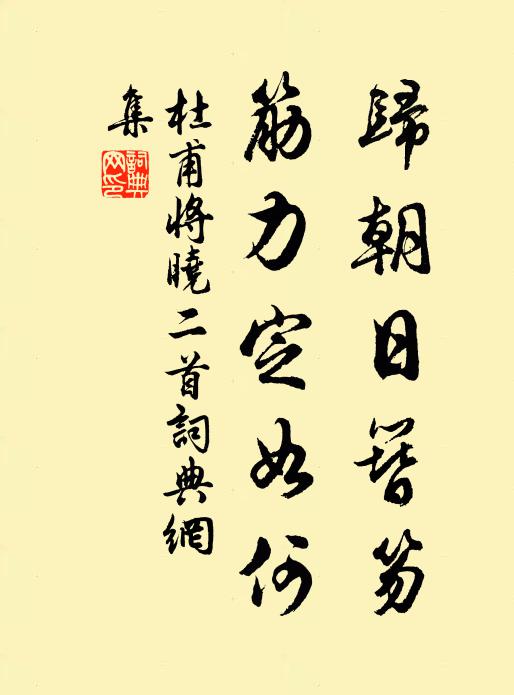 歸朝日簪笏
筋力定如何
杜甫將曉二首詞典網
集
詞典
网印